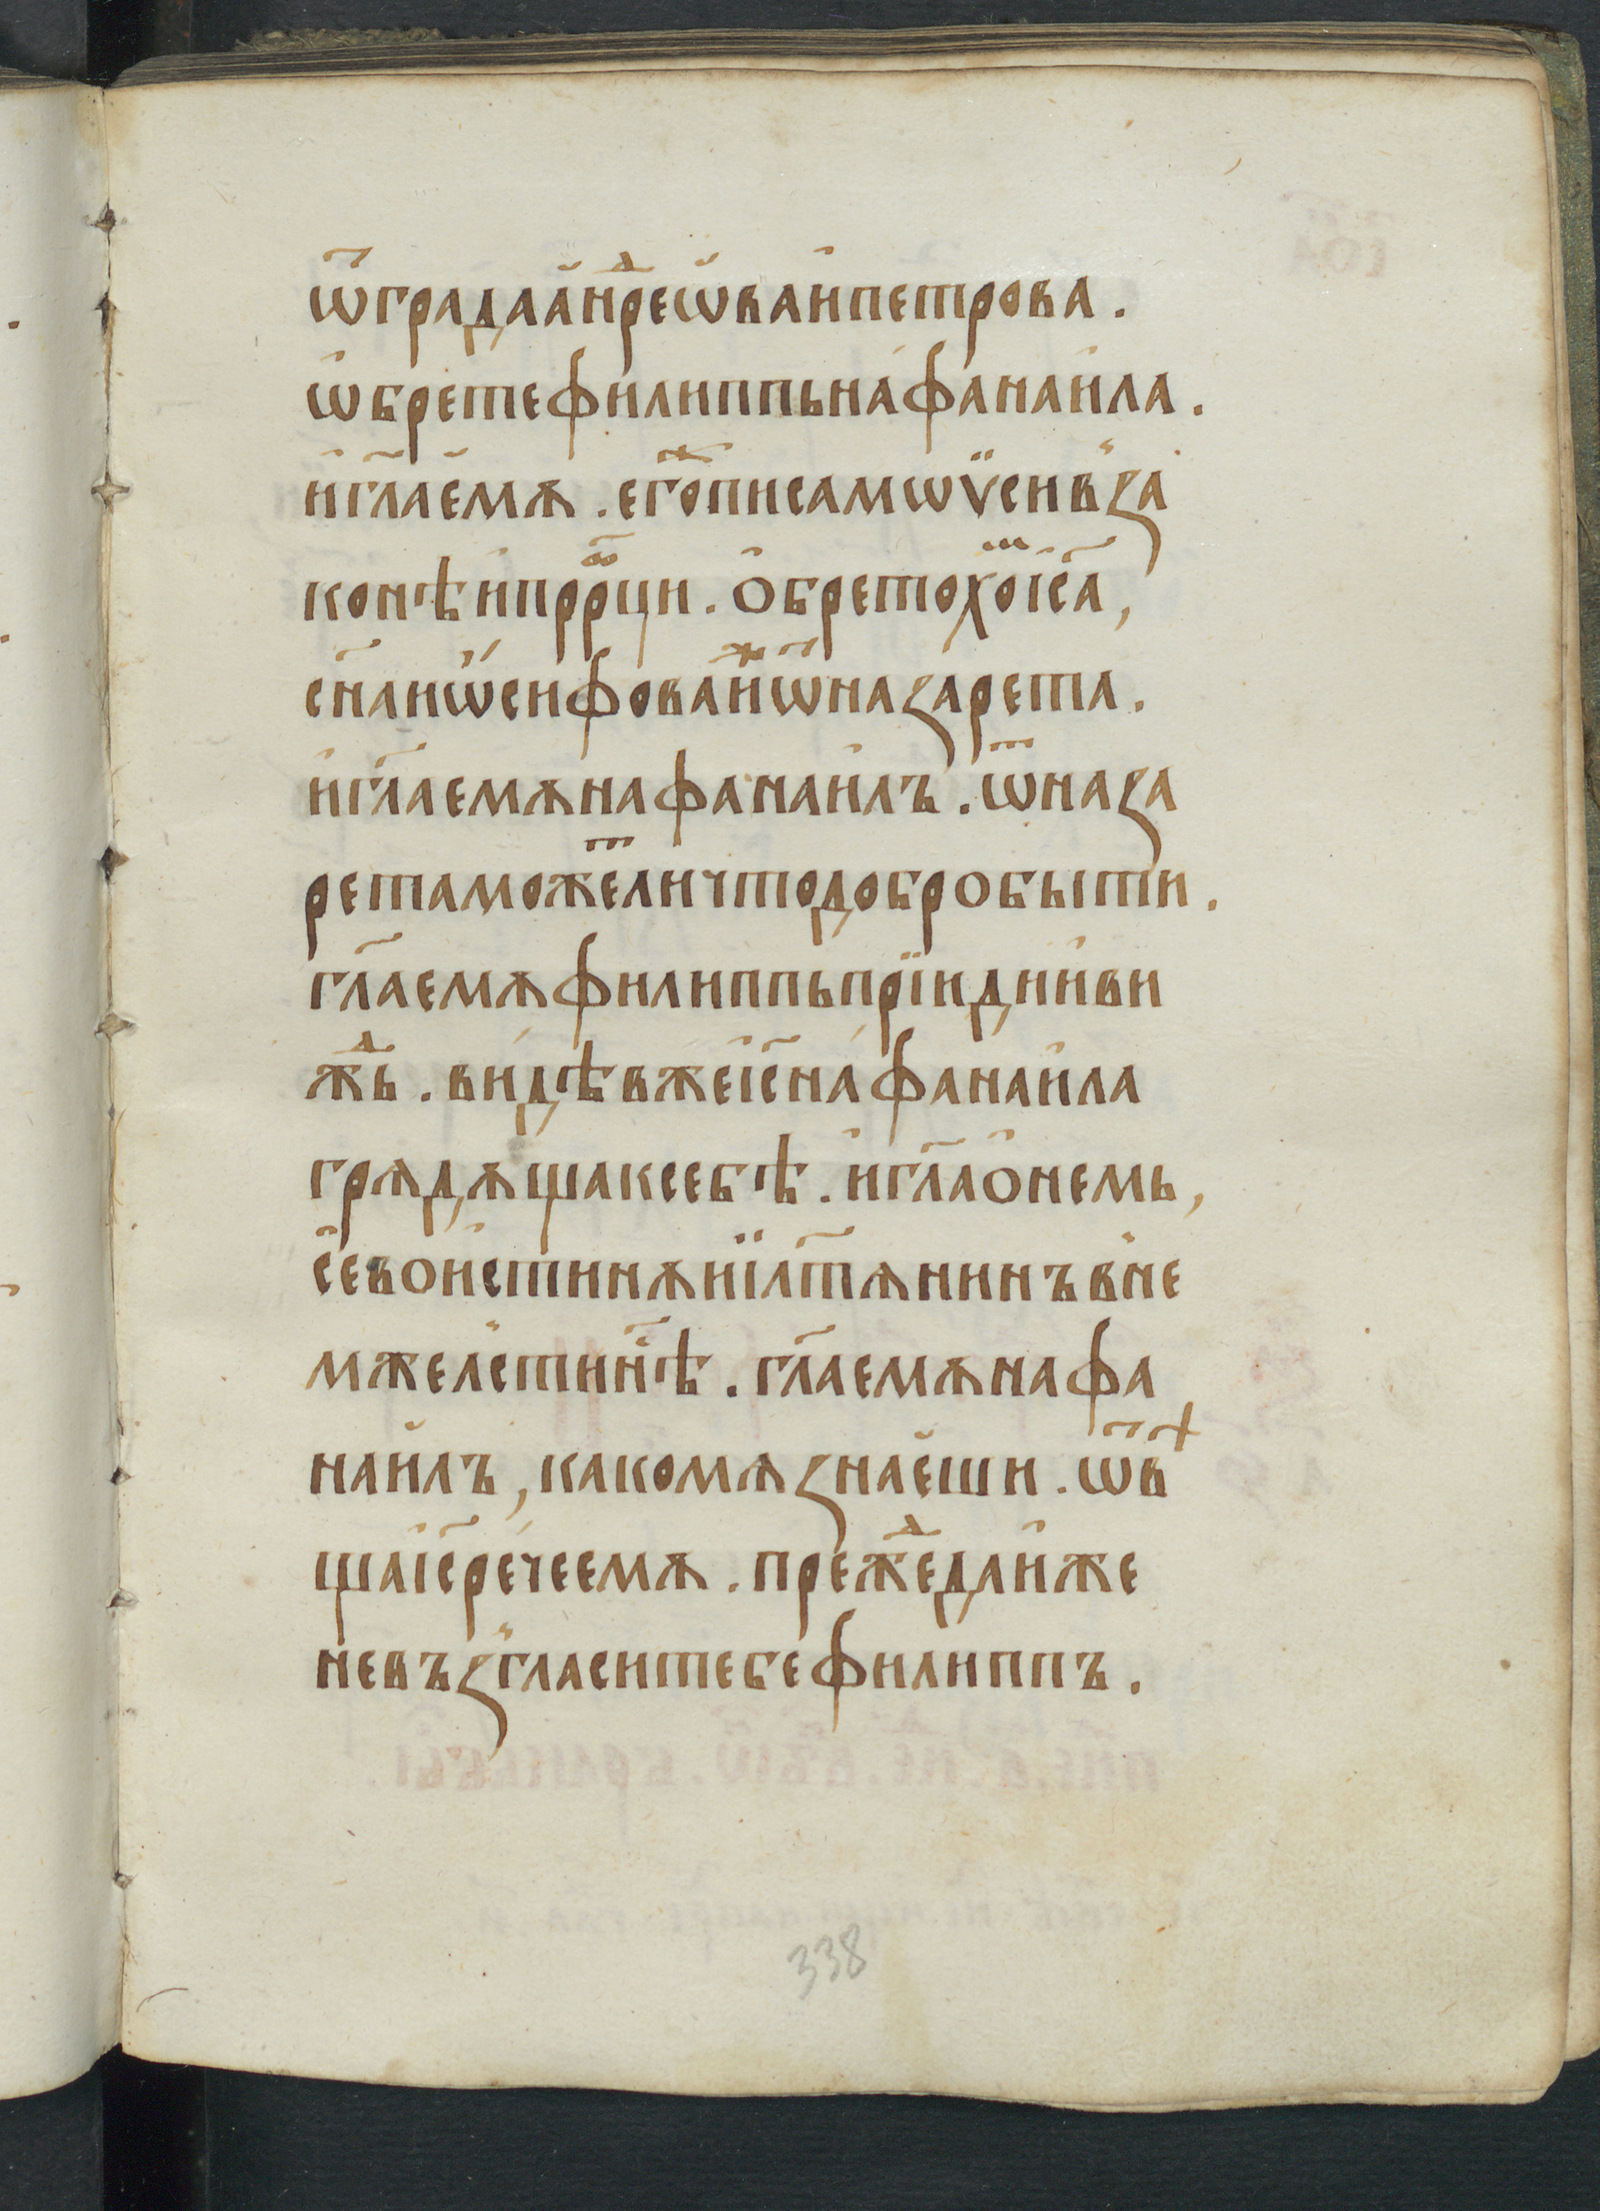 ѿградаан҆дреѡ҆ваипетрова .
ѡ҆бретефилиппьна́фанаи҆ла .
и҆гл҃аемѫ . егожписамоѡѵ̈сив̾за
конѣи҆прⷪ҇рци . Ѻ҆бретохоⷨіс҃а ,
сн҃аиѡ҆сифоваи҆жѿназарета .
и҆гл҃аемѫнафанаи҆лъ . ѿназа
ретаможⷮеличтодобробыти .
гл҃аемѫфилиппьпрїидии҆ви
жⷣь . ви́дѣвжеіс҃на́фанаи҆ла
грѫдѫщаксебѣ . и҆гл҃аѻ҆немь ,
севѻи҆стинѫиїл҃тѫнинъв̾не
мжел̾стин҃ѣ . гл҃аемѫнафа
наи҆лъ , какомѫзнае҆ши . ѿвⷷ
щаіс҃ре́чеемѫ . прежⷣедаи҆же
невъз̾гласитебефилиппъ .
338